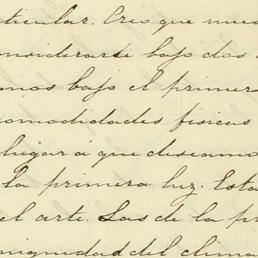 ticular. Creo que nues
considerarse bajo dos
mos bajo el primer
comodidades físicas
lugar á que deseamo
la primera luz. Esta
el arte. Las de la pr
nignidad del clima